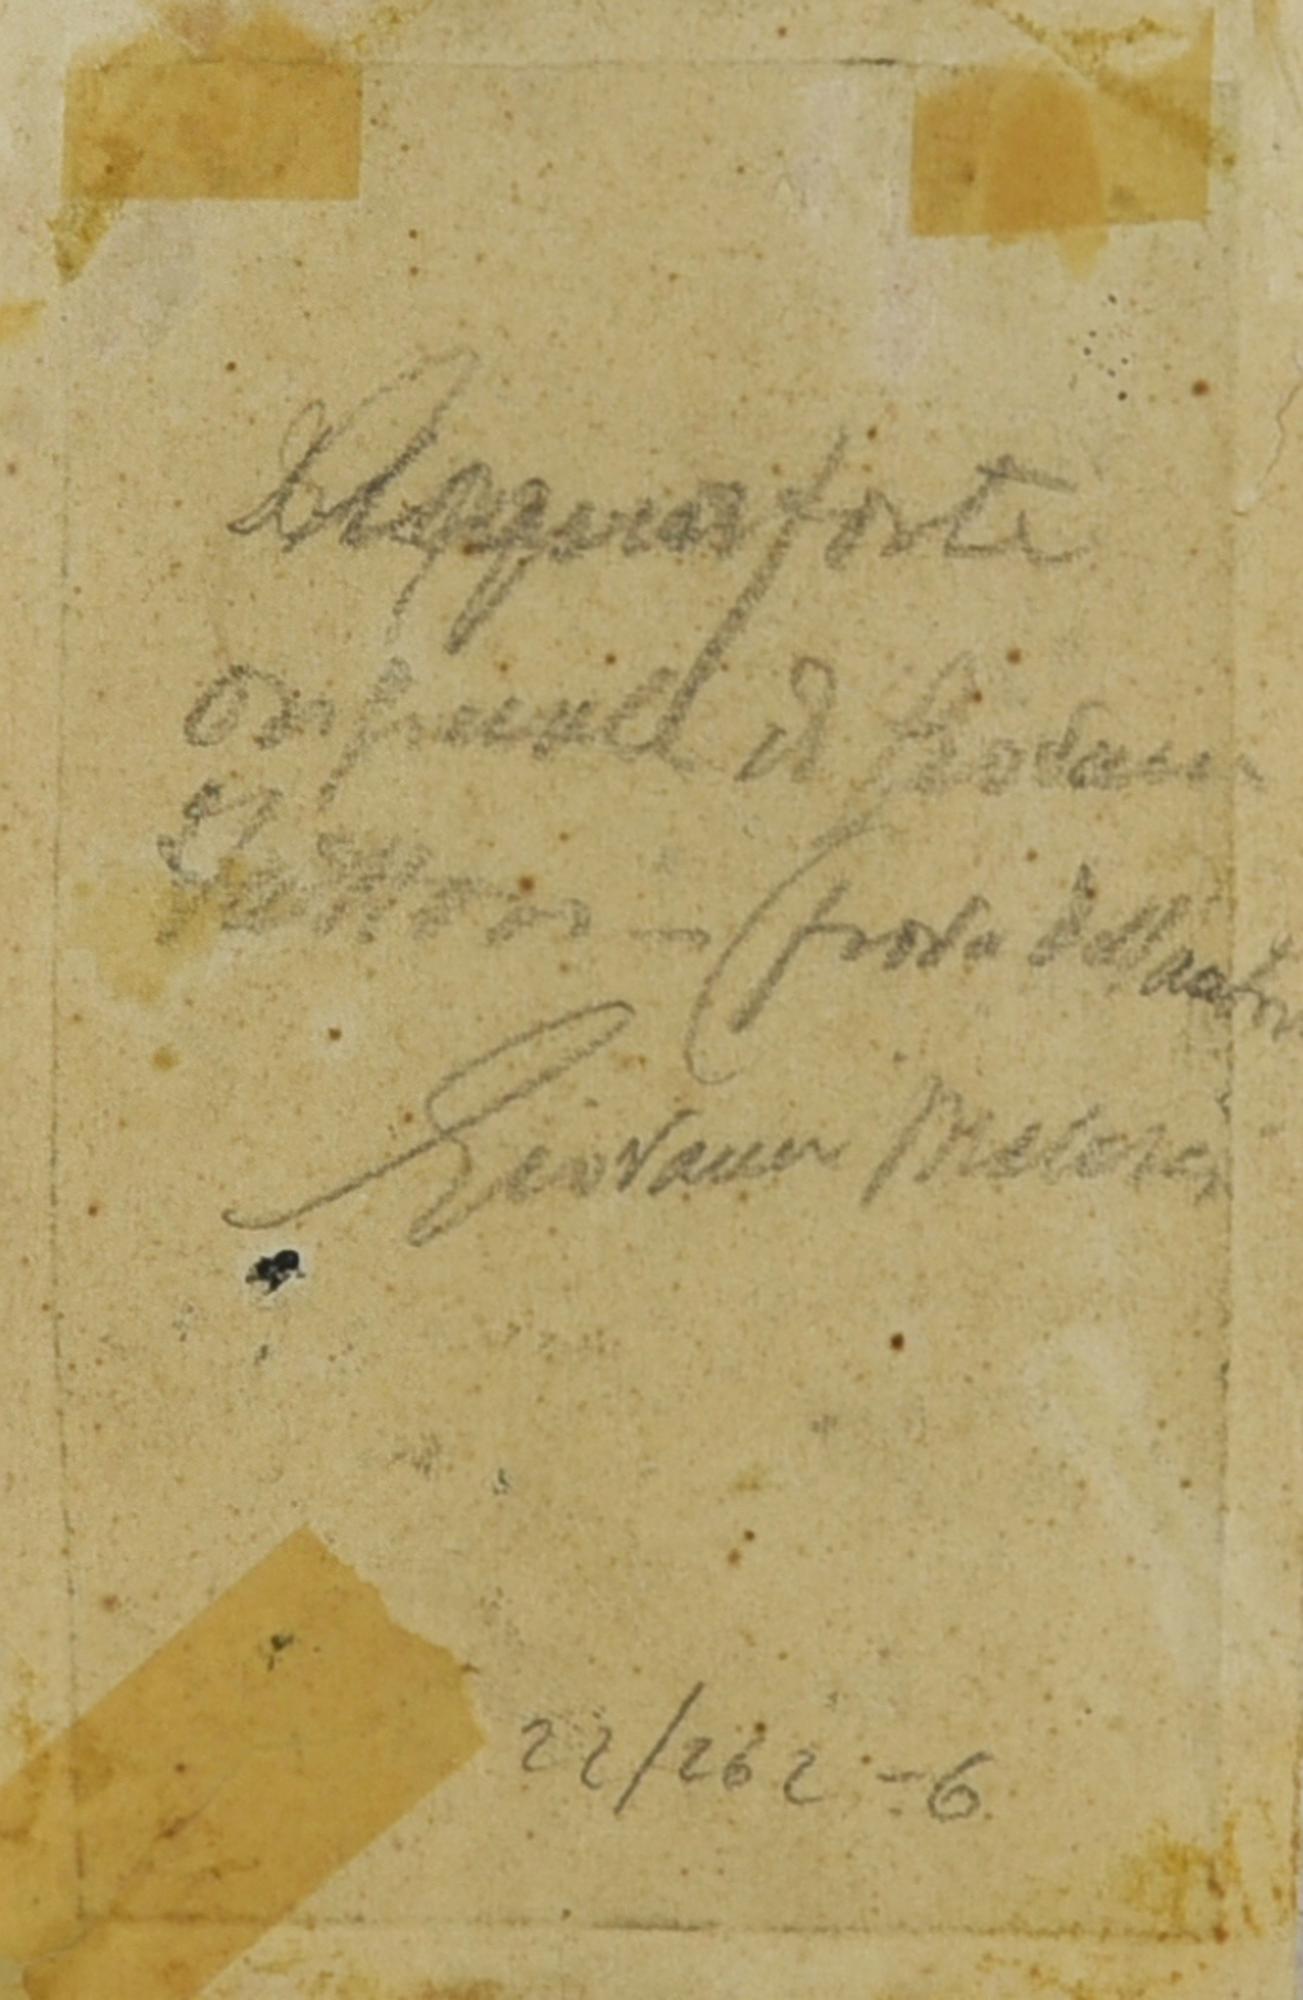 Acquaforte
originale di Giovanni
Fattori – (prova dell'autore
Giovanni Malesci
22/262 - 6